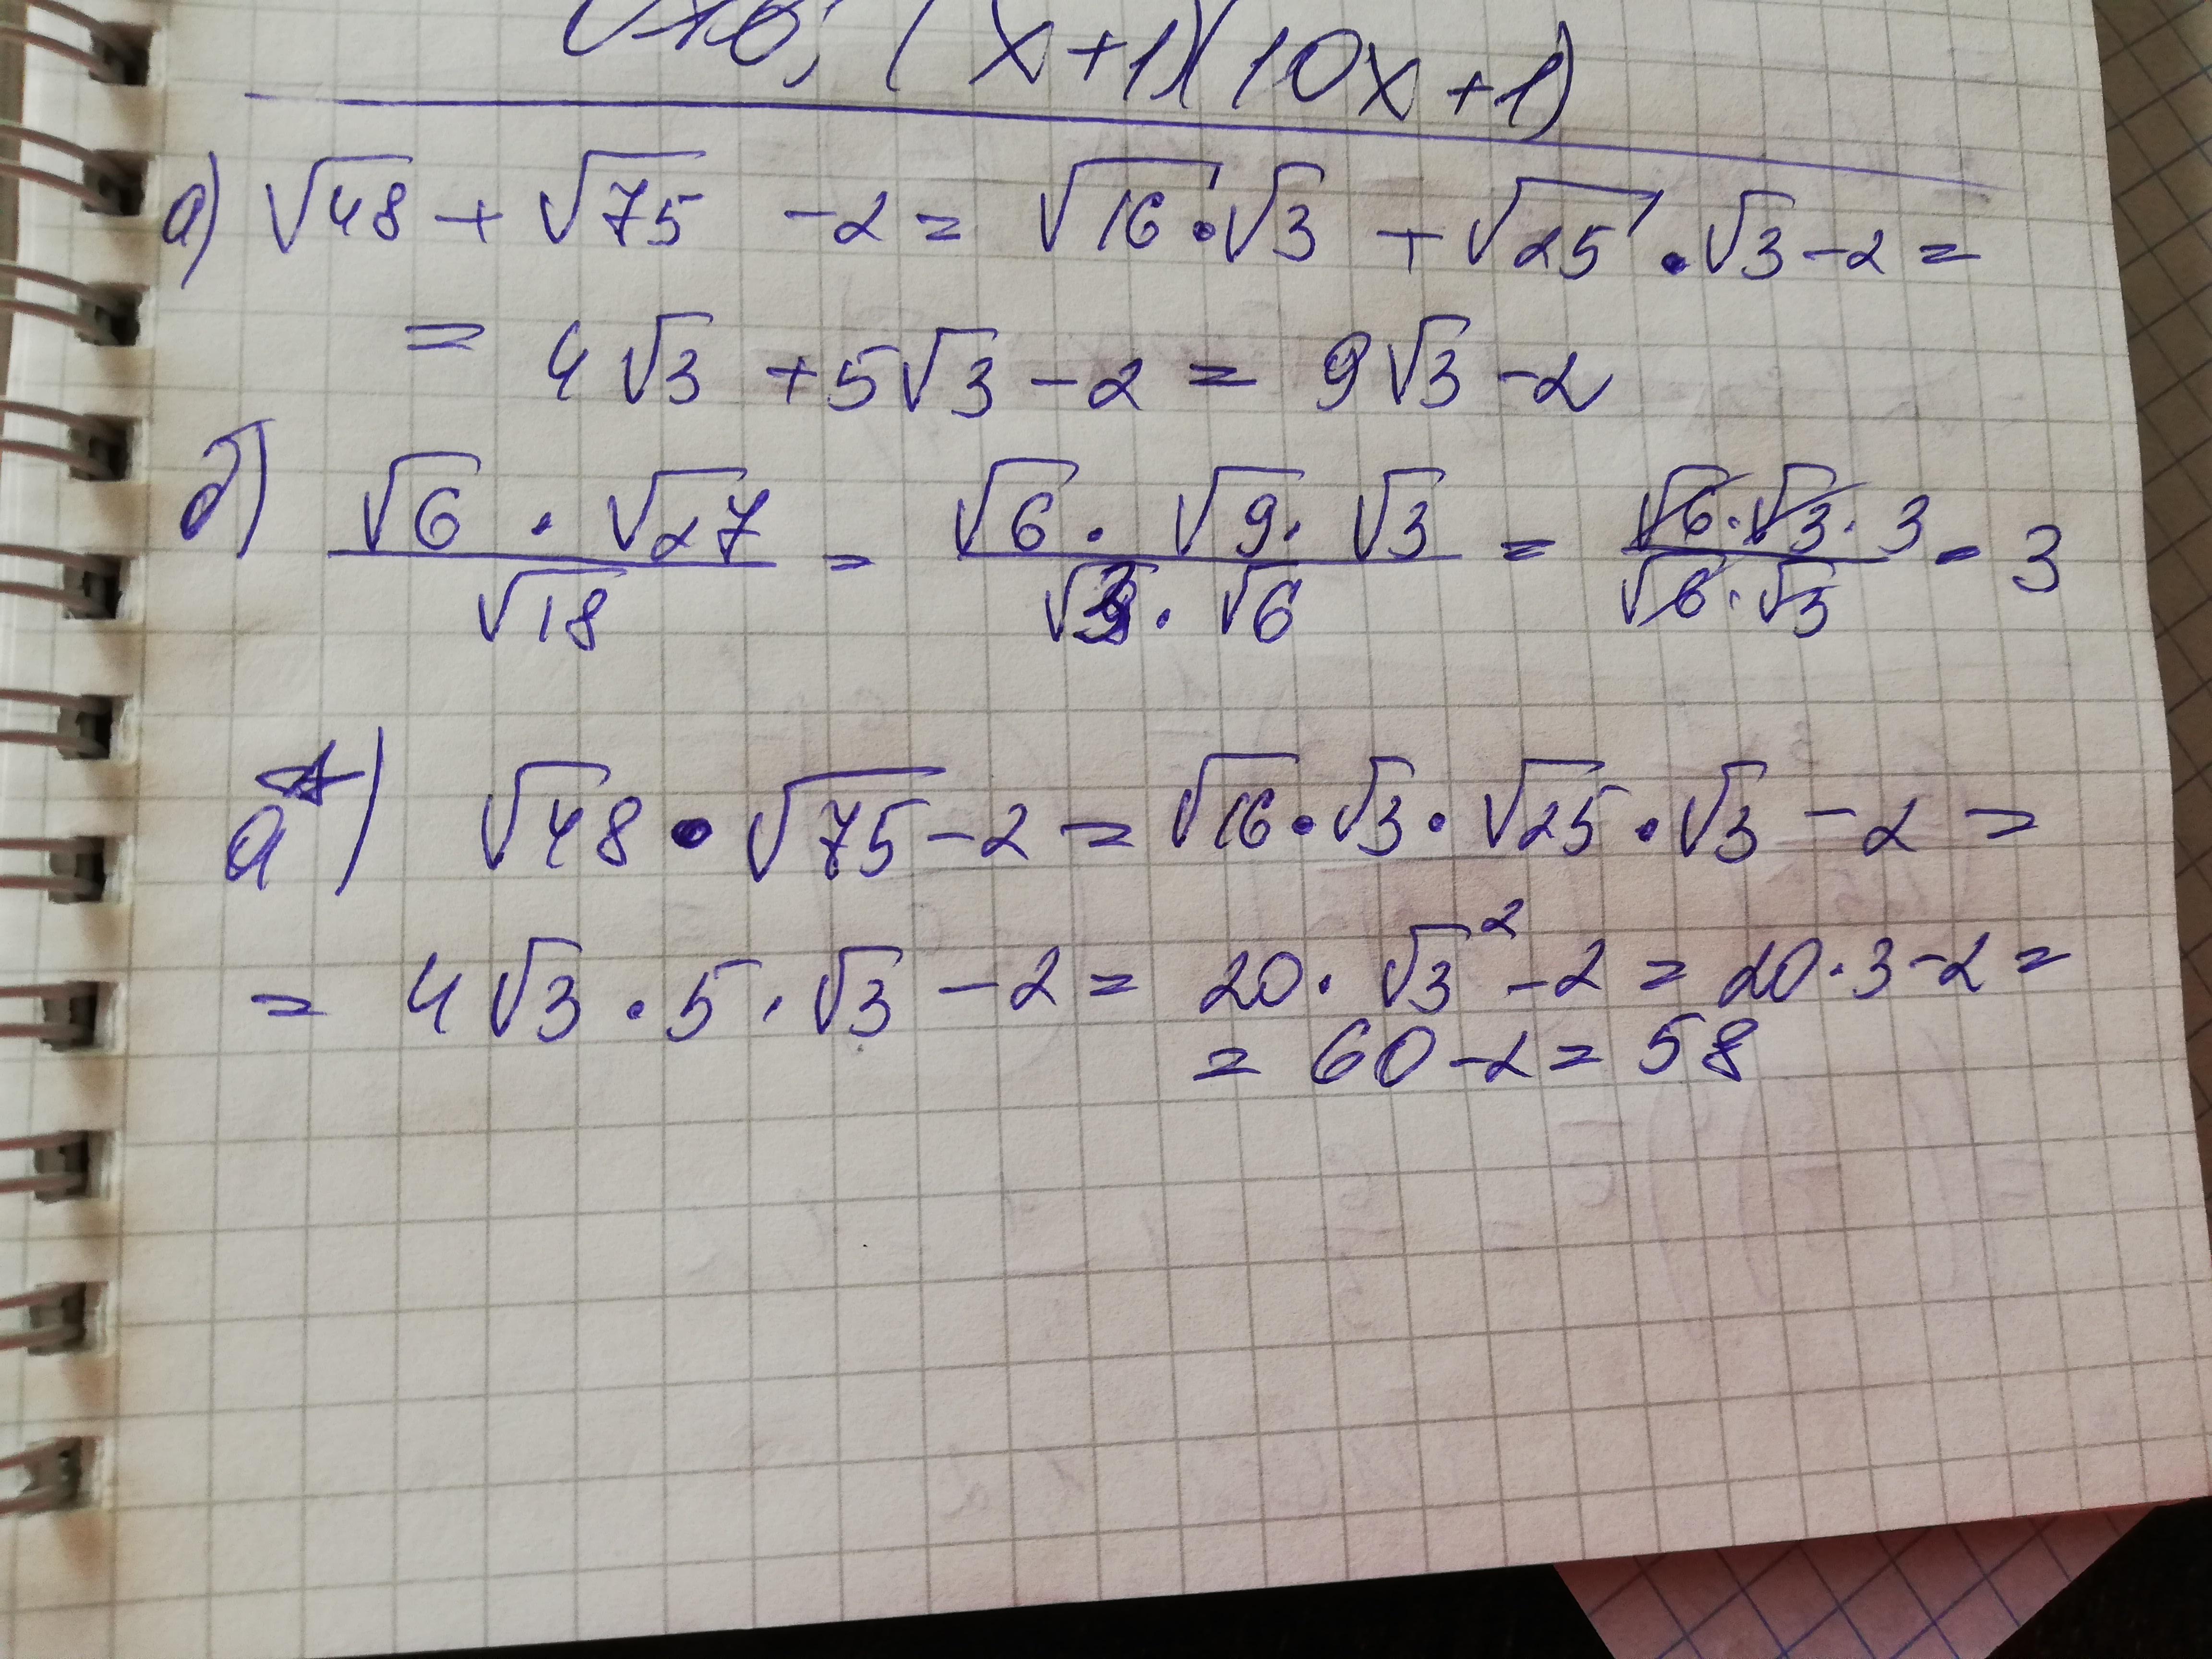 (x+1)(10x+1)
а) √48 + √75 -2 = √16 · √3 + √25 · √3 -2 =
= 4√3 +5√3 -2 = 9√3 -2
б) (√6 · √27)/√18 = (√6 · √9 · √3)/(√3 · √6) = (√6 · √3 · 3)/(√6 · √3) = 3
а*) √48 · √75 -2 = √16 · √3 · √25 · √3 -2 =
= 4√3 · 5 · √3 -2 = 20 · √3² -2 = 20 · 3 -2 =
= 60 -2 = 58